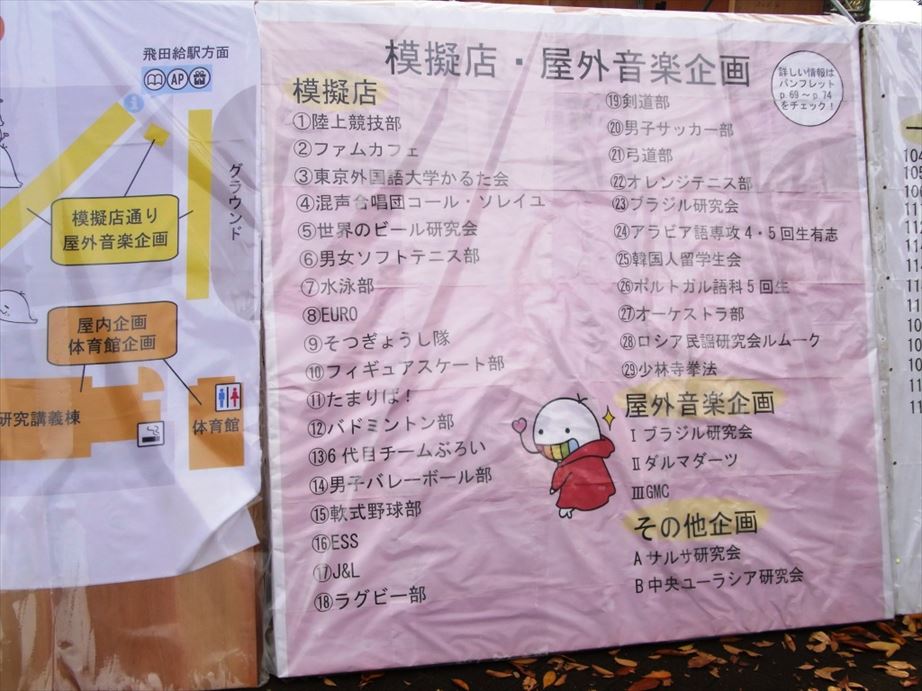 飛田給駅方面
AP
グラウンド
模擬店通り
屋外音楽企画
屋内企画
体育館企画
研究講義棟
体育館
模擬店・屋外音楽企画
詳しい情報は
パンフレット
p.69～p.74
をチェック！
模擬店
①陸上競技部
②ファムカフェ
③東京外国語大学かるた会
④混声合唱団コール・ソレイユ
⑤世界のビール研究会
⑥男女ソフトテニス部
⑦水泳部
⑧EURO
⑨そつぎょうし隊
⑩フィギュアスケート部
⑪たまりば！
⑫バドミントン部
⑬6代目チームぶろい
⑭男子バレーボール部
⑮軟式野球部
⑯ESS
⑰J&L
⑱ラグビー部
⑲剣道部
⑳男子サッカー部
㉑弓道部
㉒オレンジテニス部
㉓ブラジル研究会
㉔アラビア語専攻4・5回生有志
㉕韓国人留学生会
㉖ポルトガル語科5回生
㉗オーケストラ部
㉘ロシア民謡研究会ルムーク
㉙少林寺拳法
屋外音楽企画
Ⅰブラジル研究会
Ⅱダルマダーツ
ⅢGMC
その他企画
Aサルサ研究会
B中央ユーラシア研究会